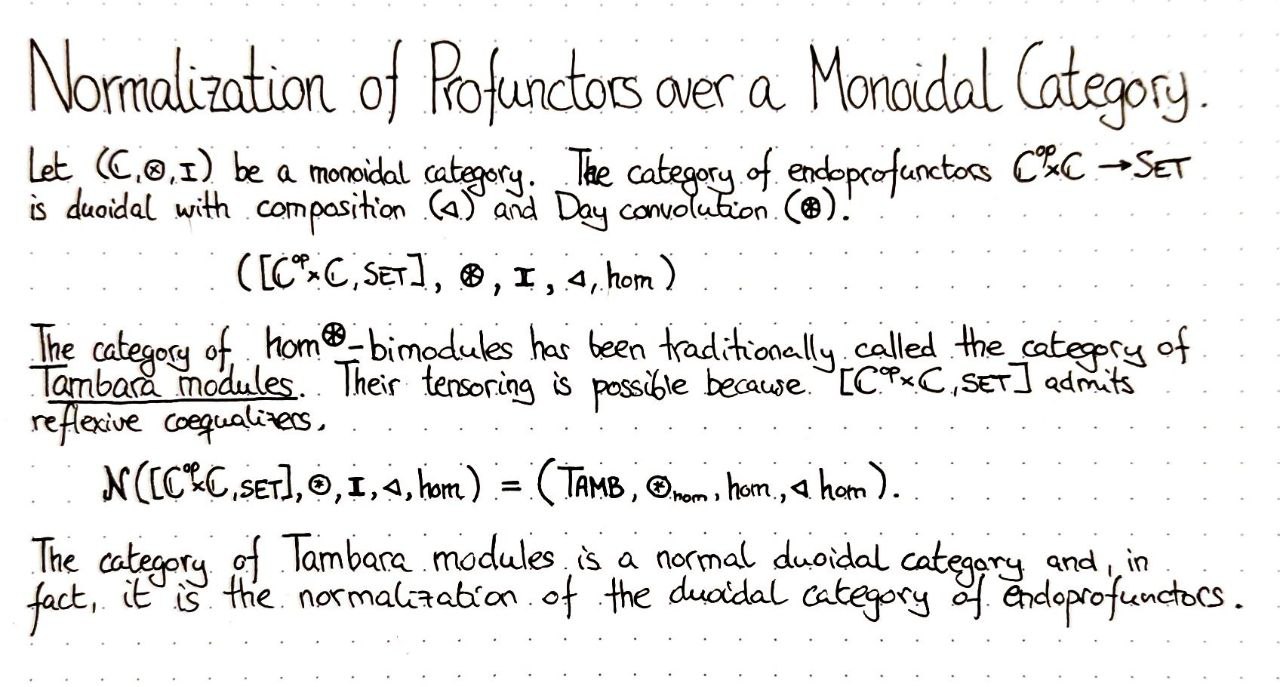 Normalization of Profunctors over a Monoidal Category.
Let (ℂ,⊗,I) be a monoidal category. The category of endoprofunctors ℂᵒᵖ×ℂ →SET
is duoidal with composition (◁) and Day convolution (⊛).
([ℂᵒᵖ×ℂ,SET], ⊛, I, ◁, hom)
The category of hom⊛-bimodules has been traditionally called the category of
Tambara modules. Their tensoring is possible because [ℂᵒᵖ×ℂ,SET] admits
reflexive coequalizers.
𝒩([ℂᵒᵖ×ℂ,SET],⊛,I,◁,hom) = (TAMB, ⊛hom, hom, ◁ hom).
The category of Tambara modules is a normal duoidal category and, in
fact, it is the normalization of the duoidal category of endoprofunctors.